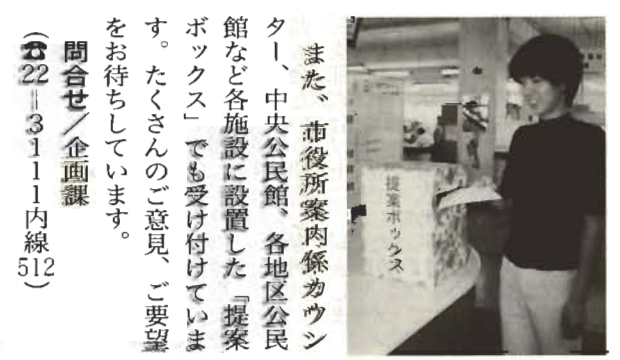 また、市役所案内係カウン
ター、中央公民館、各地区公民
館など各施設に設置した「提案
ボックス」でも受け付けていま
す。たくさんのご意見、ご要望
をお待ちしています。
問合せ／企画課
（☎22＝3111内線512）
提案ボックス